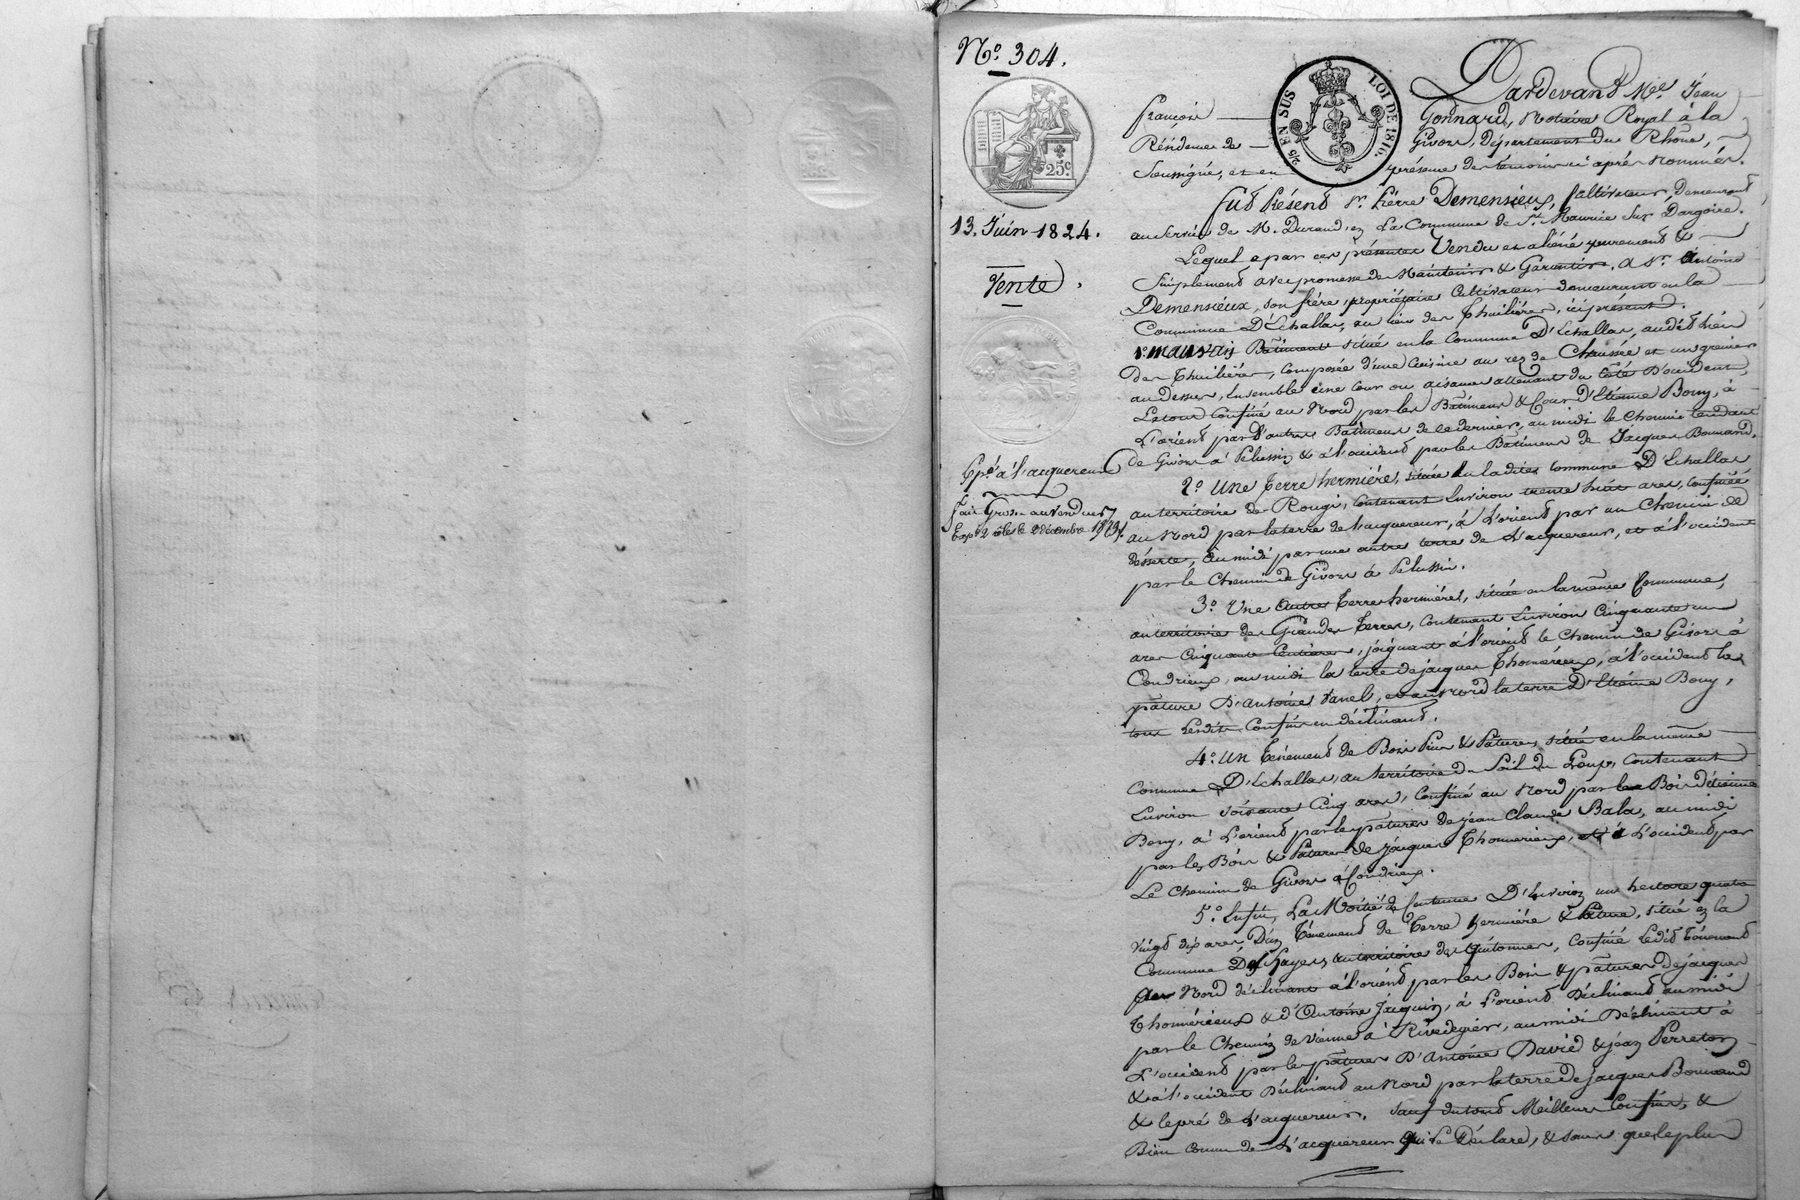 N.º 304.
25c.
13. Juin 1824.
Vente.
Exp.é à l'acquereur
fait Grosse au vendeur
Exp.on 2 rôles le 2 décembre
5/10 EN SUS LOI DE 1816.
Pardevand M.e Jean
françois Gonnard, Notaire Royal à la
Résidence de Givors, Département du Rhône,
Soussigné, et en présence des témoins ci après Nommés.
fut Présent S.r Pierre Demensieux, Cultivateur, demeurant
au Service de M. Durand, en La Commune de S.t Maurice Sur Dargoire.
Lequel a par ces présentes Vendu et aliéné purement &
Simplement avec promesse de Maintenir & Garantir, a S.r Antoine
Demensieux, son frère, propriétaire Cultivateur demeurant en la
Commune D'Echallas, au lieu des Thuilières, ici présent.
1.º mauvais Bâtiment situé en la Commune D'Echallas, audit lieu
des Thuilières, composée d'une Cuisine au rez de Chaussée et un grenier
au dessus, Ensemble une Cour ou aisance attenant du Côté D'occident,
Le tout Confiné au Nord par les Bâtiments & Cour D'Etienne Bony, à
L'orient par D'autres Bâtiments de ce dernier, au midi le Chemin tendant
de Givors à Pelussin & à l'occident par les Bâtiments de Jacques Bonnand.
2.º Une Terre hermière, située en la dite Commune D'Echallas
au territoire de Rougi, contenant Environ trente huit ares, Confinée
au Nord par la terre de l'acquereur, à L'orient par un Chemin de
désserte, au midi par une autre terre de L'acquereur, et à l'occident
par le Chemin de Givors à Pelussin.
3.º Une autre Terre hermière, située en la même Commune,
au territoire des Grandes Terres, Contenant Environ Cinquante un
ares Cinquante Centiares, joignant à l'orient le Chemin de Givors à
Condrieux, au midi la terre de jacques Thomérieux, à l'occident la
pâture D'Antoine Vanel, et au Nord la terre D'Etienne Bony,
tous Lesdits Confins en déclinant.
4.º Un Ténement de Bois Pins & Pâtures, situé en la même
Commune D'Echallas, au territoire du Poil du Loup, Contenant
Environ Soixante Cinq ares, Confiné au Nord par le Bois d'étienne
Bony, à L'orient par les pâtures de jean Claude Bala, au midi
par les Bois & Pâtures de jacques Thomerieux, et à L'occident par
Le Chemin de Givors à Condrieux.
5.º Enfin, La Moitié de Contenue D'Environ un hectare quatre
Vingt dix ares, D'un Ténement de Terre hermière & Pâture, situé en la
Commune Des hayes, au territoire des Guitonnes, Confiné Ledit Ténement
au Nord déclinant à l'orient par les Bois & pâtures de jacques
Thomérieux & d'Antoine Jacquin, à L'orient Déclinant au midi
par le Chemin de Vienne à Rivedegier, au midi Déclinant à
L'occident par les pâtures D'Antoine David & jean Perreton
& à l'occident Déclinant au Nord par la terre de jacques Bonnand
& le pré de L'acquereur. Sauf du tout Meilleurs Confins, &
Bien connu de L'acquéreur qui Le Déclare, & sans que le plus